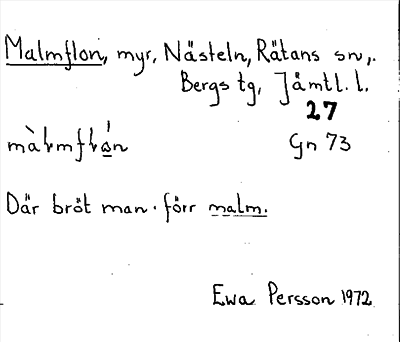 Malmflon, myr, Nästeln, Rätans sn,.
Bergs tg, Jämtl. l.
27
màlmflån Gn 73
Där bröt man förr malm.
Ewa Persson 1972